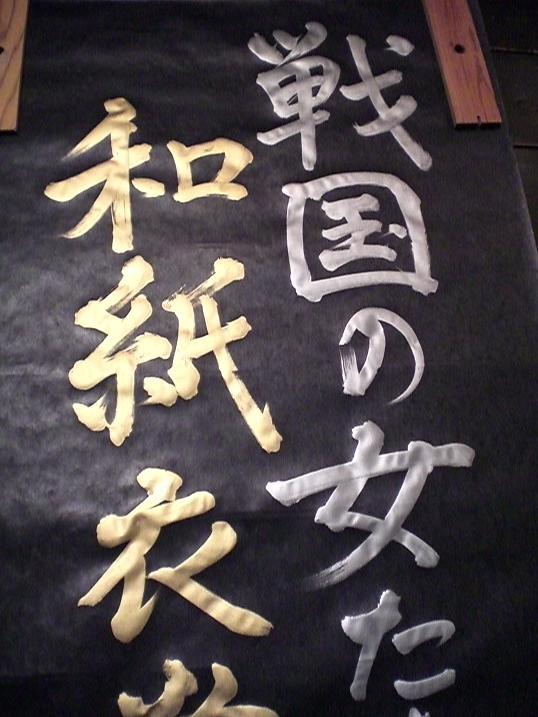 戦国の女た
和紙衣